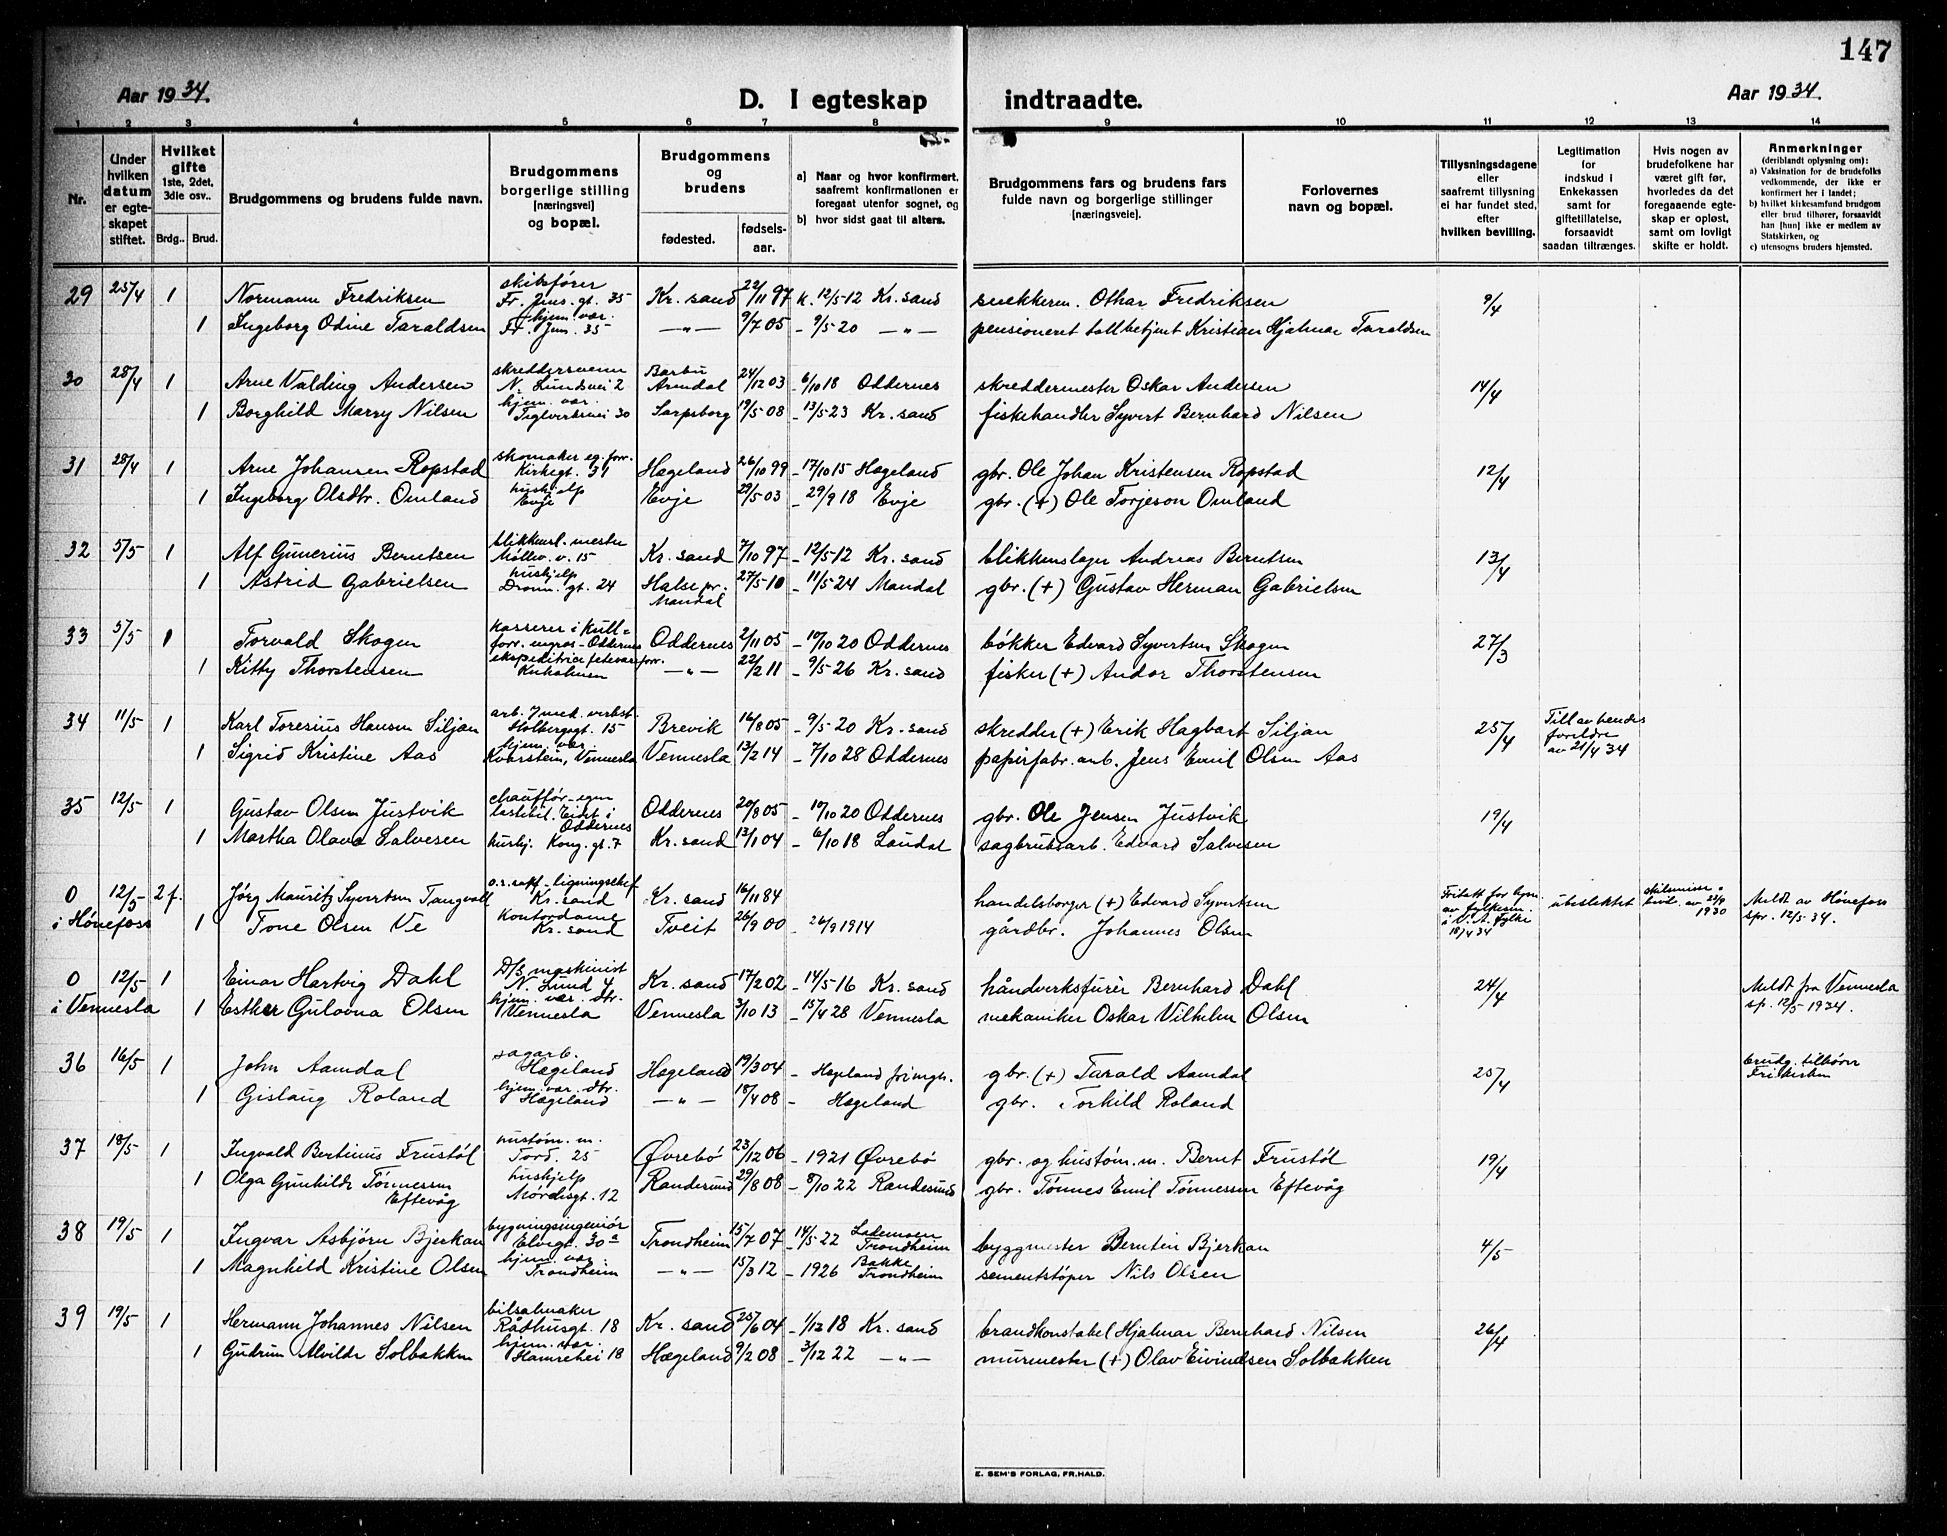 147
Aar 1934.
D. I egteskap indtraadte.
Aar 1934.
1 2 3 4 5 6 7 8 9 10 11 12 13 14
Nr.
Under hvilken datum er egteskapet stiftet.
Hvilket gifte 1ste, 2det, 3die osv..
Brdg.. Brud.
Brudgommens og brudens fulde navn.
Brudgommens borgerlige stilling [næringsvei] og bopæl.
Brudgommens og brudens
fødested.
fødselsaar.
a) Naar og hvor konfirmert, saafremt konfirmationen er foregaat utenfor sognet, og
b) hvor sidst gaat til alters.
Brudgommens fars og brudens fars fulde navn og borgerlige stillinger [næringsveie].
Forlovernes navn og bopæl.
Tillysningsdagene eller saafremt tillysning ei har fundet sted, efter hvilken bevilling.
Legitimation for indskud i Enkekassen samt for giftetillatelse, forsaavidt saadan tiltrænges.
Hvis nogen av brudefolkene har været gift før, hvorledes da det foregaaende egteskap er opløst, samt om lovligt skifte er holdt.
Anmerkninger (deriblandt oplysning om):
a) Vaksination for de brudefolks vedkommende, der ikke er konfirmert her i landet;
b) hvilket kirkesamfund brudgom eller brud tilhører, forsaavidt han [hun] ikke er medlem av Statskirken, og
c) utensogns bruders hjemsted.
29 25/4 1 Normann Fredriksen skibsfører Fr. Jms. gt. 35 Kr. sand 22/11 97 k. 12/5-12 Kr. sand snekkerm. Othar Fredriksen 9/4
1 Ingeborg Odine Taraldsen hjem. vær. Fr. Jms. 35 —"— 9/7 05 - 9/5-20 —"— pensioneret tollbetjent Kristian Hjalmar Taraldsen
30 28/4 1 Arne Valding Andersen skreddersvenn N. Lundsvei 2 Barbu Arendal 24/12 03 - 6/10 18 Oddernes skreddermester Oskar Andersen 14/4
1 Borghild Marry Nilsen hjem. vær. Teglverksvei 30 Sarpsborg 19/5-08 - 13/5-23 Kr. sand fiskehandler Syvert Bernhard Nilsen
31 28/4 1 Arne Johansen Ropstad skomaker eg. forr. Kirkegt. 31 Hægeland 26/10 99 - 17/10 15 Hægeland gbr. Ole Johan Kristensen Ropstad 12/4
1 Ingeborg Olsdtr. Omland hushjelp Evje Evje 29/5 03 - 29/9 18 Evje gbr. (+) Ole Torjeson Omland
32 5/5 1 Alf Gunerius Berntsen blikkensl. mester Møllev. v. 15 Kr. sand 7/10 97 - 12/5-12 Kr. sand blikkenslager Andreas Berntsen 13/4
1 Astrid Gabrielsen hushjelp Dronn. gt. 24 Halse pr. Mandal 27/5-10 - 11/5-24 Mandal gbr. (+) Gustav Herman Gabrielsen
33 5/5 1 Torvald Skogen kasserer i kull= forr. engros - Oddernes Oddernes 2/11 05 - 10/10 20 Oddernes bøkker Edvard Syvertsen Skogen 27/3
1 Kitty Thorstensen ekspeditrice fetevareforr. —"— 22/2 11 - 9/5-26 Kr. sand fisker (+) Andor Thorstensen
34 11/5 1 Karl Torerius Hansen Siljan arb. J mek. verkst. Holbergsgt. 15 Brevik 16/8 05 - 9/5-20 Kr. sand skredder (+) Erik Hagbart Siljan 25/4 Till av hendes foreldre av 21/4 34
1 Sigrid Kristine Aas hjem. vær Kvarstein, Vennesla Vennesla 13/2 14 - 7/10 28 Oddernes papirfabr. arb. Jens Emil Olsen Aas
35 12/5 1 Gustav Olsen Justvik chauffør - egen lastebil. Eidet i Oddernes Oddernes 20/8 05 - 10/10 20 Oddernes gbr. Ole Jensen Justvik 19/4
1 Martha Olava Salvesen hushj. Kong. gt. 7 Kr. sand 13/1 04 - 6/10 18 Laudal sagbruksarb. Edvard Salvesen
0 12/5 2 f. Jørg Mauritz Syvertsen Tangvall o.r. sakf. - ligningschef Kr. sand Kr. sand 16/11 84 handelsborger (+) Edvard Syvertsen Fritatt for lysn. av fylkesm. i V. A. fylke 18/4 34 uteslektet skilsmisse bevil. av 22/9 1930 Meldt av Hønefoss spr. 12/5 34.
i Hønefoss 1 Tone Olsen Ve kontordame Kr. sand Tveit 26/9 00 - 26/9 1914 gårdbr. Johannes Olsen
0 12/5 1 Einar Hartvig Dahl D/S maskinist N. Lund 4 Kr. sand 17/2 02 - 14/5-16 Kr. sand håndverksfurér Bernhard Dahl 24/4 Meldt fra Vennesla sp. 12/5 1934.
i Vennesla 1 Esther Gulovna Olsen hjem. vær. dtr. Vennesla Vennesla 3/10 13 - 15/4 28 Vennesla mekaniker Oskar Vilhelm Olsen
36 16/5 1 John Aamdal sagarb. Hægeland Hægeland 19/3 04 - Hægeland frimgh. gbr. (+) Tarald Aamdal 25/4 brudg. tilhører Frikirken
1 Gislaug Roland hjem. vær. dtr. Hægeland —"— 18/4 08 - Hægeland gbr. Torkild Roland
37 18/5 1 Ingvald Bertinus Frustøl hustøm. m. Tord. 25 Øvrebø 23/12 06 - 1921 Øvrebø gbr. og hustøm. m. Bernt Frustøl 19/4
1 Olga Gunhilde Tønnessen Eftevåg hushjelp Nordisgt. 12 Randesund 29/8 08 - 8/10 22 Randesund gbr. Tønnes Emil Tønnessen Eftevåg
38 19/5 1 Ingvar Asbjørn Bjerkan bygningsingeniør Elvegt. 30a Trondheim 15/7 07 - 14/5-22 Lademoen Trondheim byggmester Berntin Bjerkan 4/5
1 Magnhild Kristine Olsen hjem. vær Trondheim —"— 15/3 12 - 1926 Bakke Trondheim sementstøper Nils Olsen
39 19/5 1 Hermann Johannes Nilsen bilsalmaker Rådhusgt. 18 Kr. sand 25/6 04 - 1/12 18 Kr. sand brandkonstabel Hjalmar Bernhard Nilsen 26/4
1 Gudrun Alvilde Solbakken hjem. vær. Hamrehei 18 Hægeland 9/2 08 - 3/12 22 —"— murmester (+) Olav Eivindsen Solbakken
E. SEM'S FORLAG, FR.HALD.